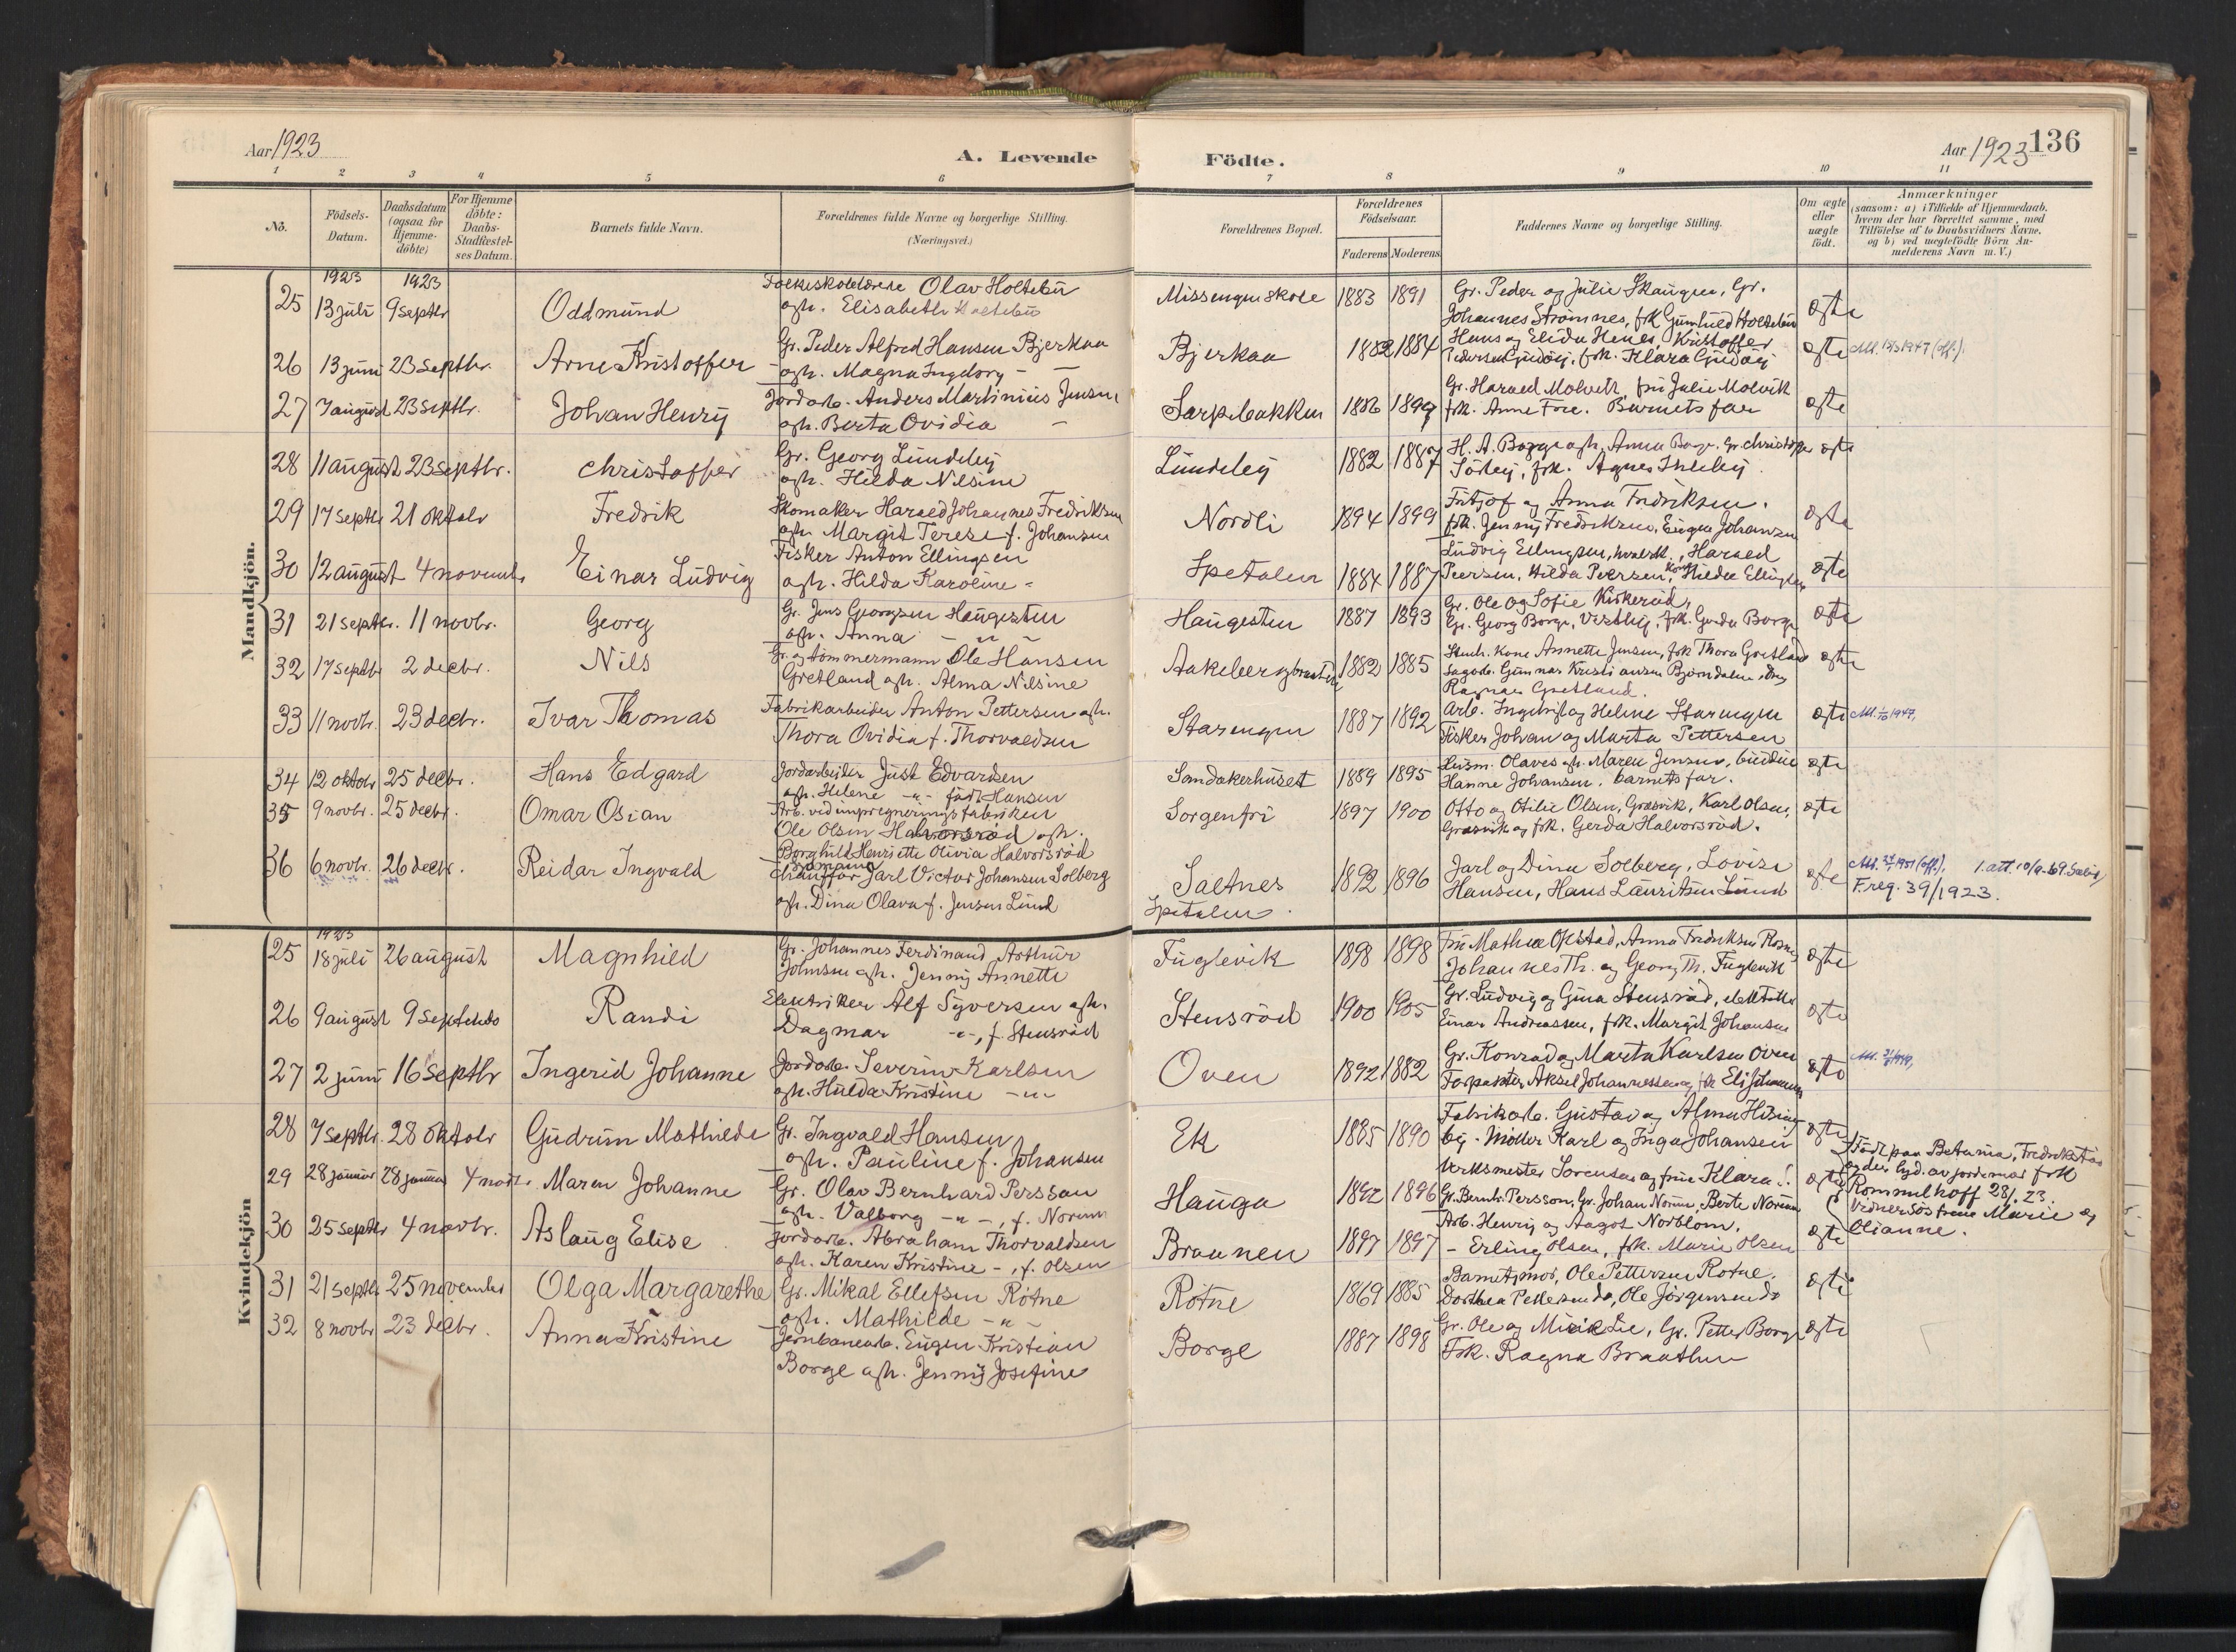 Aar 1923
A. Levende
Födte.
Aar 1923
136
1 2 3 4 5 6 7 8 9 10 11
No.
Födsels-
Datum.
Daabsdatum
(ogsaa for
Hjemme-
döbte)
For Hjemme
döbte:
Daabs-
Stadfæstel-
ses Datum.
Barnets fulde Navn.
Forældrenes fulde Navne og borgerlige Stilling.
(Næringsvei.)
Forældrenes Bopæl.
Forældrenes
Födselsaar.
Faderens Moderens
Faddernes Navne og borgerlige Stilling.
Om ægte
eller
uægte
födt.
Anmærkninger
(saasom: a) i Tilfælde af Hjemmedaab,
hvem der har forrettet samme, med
Tilföielse af to Daabsvidners Navne,
og b) ved uægtefödte Börn An-
melderens Navn m. V.)
Mandkjön.
1923 1923
25 13 juli 9 septbr Oddmund
Folkeskolelærer Olav Holtebu
agh. Elisabeth Holtebu
Missengen skole 1883 1891
Gr. Peder og Julie Skaugen, Gr.
Johannes Strömnes, frk Gunhild Holtebu
ægte
26 13 juni 23 Septbr. Arne Kristoffer
Gr. Peder Alfred Hansen Bjerkaa
agh. Magna Ingeborg - -
Bjerkaa 1882 1884
Hans og Elida Henes, Kristoffer
Pedersen Gudöy, frk. Klara Gudöy
ægte
27 7 august 23 septbr. Johan Henry
Jordarb. Anders Martinius Jensen
agh. Berta Ovidia -
Sarpebakken 1886 1899
Gr. Harald Molvik, fru Julie Molvik
frk. Anne Fore. Barnets far
ægte
28 11 august 23 septbr. Christoffer
Gr. Georg Lundeby
agh. Hilda Nilsine
Lundeby 1882 1887
H. A. Borge agh. Anna Borge. Gr. Christoffer
Sörby, frk. Agnes Ihleby.
ægte
29 17 septbr 21 oktobr Fredrik
Skomaker Harald Johannes Fredriksen
agh. Margit Terese f. Johansen
Nordli 1894 1899
Fritjof og Anna Fredriksen.
frk. Jenny Fredriksen, Eugen Johansen
ægte
30 12 august 4 novembr Einar Ludvig
Fisker Anton Ellingsen
agh. Hilda Karoline -
Spetalen 1884 1887
Ludvig Ellingsen, Harald
Peersen, Hilda Peersen, Hilda Ellingsen
ægte
31 21 septbr. 11 novbr. Georg
Gr. Jens Georgsen Haugesten
agh. Anna - " -
Haugesten 1887 1893
Gr. Ole og Sofie Kirkeröd,
Gr. Georg Borge, Vestby, frk. Gerda Borge
ægte
32 17 septbr 2 decbr. Nils
Gr. og tömmermann Ole Hansen
Gretland agh. Alma Nilsine
Aakebergbraaten 1882 1885
kone Annette Jensen, frk Thora Gretland
Sagarb. Gunnar Kristiansen Björndalen
Ragnar Gretland.
ægte
33 11 novbr. 23 decbr. Ivar Thomas
Fabrikarbeider Anton Pettersen agh.
Thora Ovidia f. Thorvaldsen
Starengen 1887 1892
Arb. Ingebrigt og Helene Starengen
Fisker Johan og Marta Pettersen
ægte
34 12 oktobr 25 decbr. Hans Edgard
Jordarbeider Just Edvardsen
agh. Helene - " - född Hansen
Sandakerhuset 1889 1895
Husm. Olaves agh. Maren Jensen,
Hanne Johansen. barnets far.
ægte
35 9 novbr. 25 decbr. Omar Osian
Arb. ved impregneringsfabriken
Ole Olsen Halvorsröd agh.
Borghild Henriette Olivia Halvorsröd
Sorgenfri 1897 1900
Otto og Otilie Olsen, Græsvik, Karl Olsen,
Græsvik og frk. Gerda Halvorsröd.
ægte
36 6 novbr. 26 decbr. Reidar Ingvald
sjömann
chauffør Jarl Victor Johansen Solberg
agh. Dina Olava f. Jensen Lund
Saltnes
Spetalen.
1892 1896
Jarl og Dina Solberg, Lovise
Hansen, Hans Lauritsen Lund
ægte
F.reg. 39/1923.
Kvindekjön
1923
25 18 juli 26 august Magnhild
Gr. Johannes Ferdinand Arthur
Johnsen agh. Jenny Annette
Fuglevik 1898 1898
Fru Mathea Opstad, Anna Fredriksen Rosnes
Johannes Th. og Georg Th. Fuglevik
ægte
26 9 august 9 Septembr Randi
Elektriker Alf Syversen agh.
Dagmar - " -, f. Stensröd
Stensröd 1900 1905
Gr. Ludvig og Gina Stensröd,
Einar Andreassen, frk. Margit Johansen
ægte
27 2 juni 16 Septbr Ingerid Johanne
Jordarb. Severin Karlsen
agh. Hulda Kristine - " -
Oven 1892 1882
Gr. Konrad og Marta Karlsen Oven
Forpakter Aksel Johannessen og frk Eli Johannessen
ægte
28 7 septbr. 28 oktobr Gudrun Mathilde
Gr. Ingvald Hansen
agh. Pauline f. Johansen
Ek 1885 1890
Fabrikarb. Gustav og Alma Huseby
by - Möller Karl og Inga Johansen
ægte
29 28 januar 28 januar 4 novbr. Maren Johanne
Gr. Olav Bernhard Persson
agh. Valborg - " -, f. Norum
Hauga 1892 1896
Verksmester Sorensen og frue Klara S.
Gr. Bernh. Persson, Gr. Johan Norum, Berte Norum
ægte
Födt paa Betania, Fredrikstad
og der hjd. av jordemor frk
Rommelhoff 28/1. 23.
Vidner: Söstrene Marie og
Olianne.
30 25 septbr 4 novbr. Aslaug Elise
Jordarb. Abraham Thorvaldsen
agh. Karen Kristine - , f. Olsen
Braanen 1897 1897
Arb. Henry og Aagot Norblom.
- Erling Olsen, frk. Marie Olsen
ægte
31 21 septbr 25 november Olga Margarethe
Gr. Mikal Ellefsen Rotne
agh. Mathilde - " -
Rotne 1869 1885
Barnets mor, Ole Pettersen Rotne.
Dorthea Pettersen do, Ole Jörgensen do
ægte
32 8 novbr 23 decbr. Anna Kristine
Jernbanearb. Eugen Kristian
Borge agh. Jenny Josefine
Borge 1887 1898
Gr. Ole og Lie, Gr. Petter Borge
Frk. Ragna Braathen
ægte